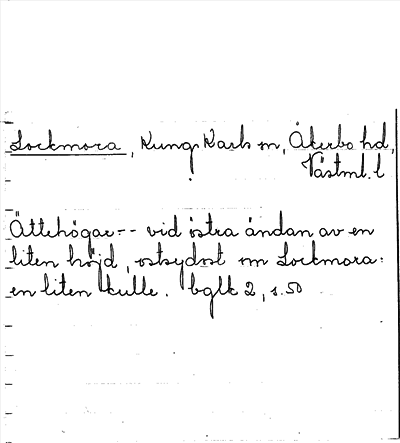 Sockmora, Kung Karls sn, Åkerbo hd,
Västml. l
Ättehögar -- vid östra ändan av en
liten höjd, ostsydost om Sockmora:
en liten kulle. bglk 2, s. 50